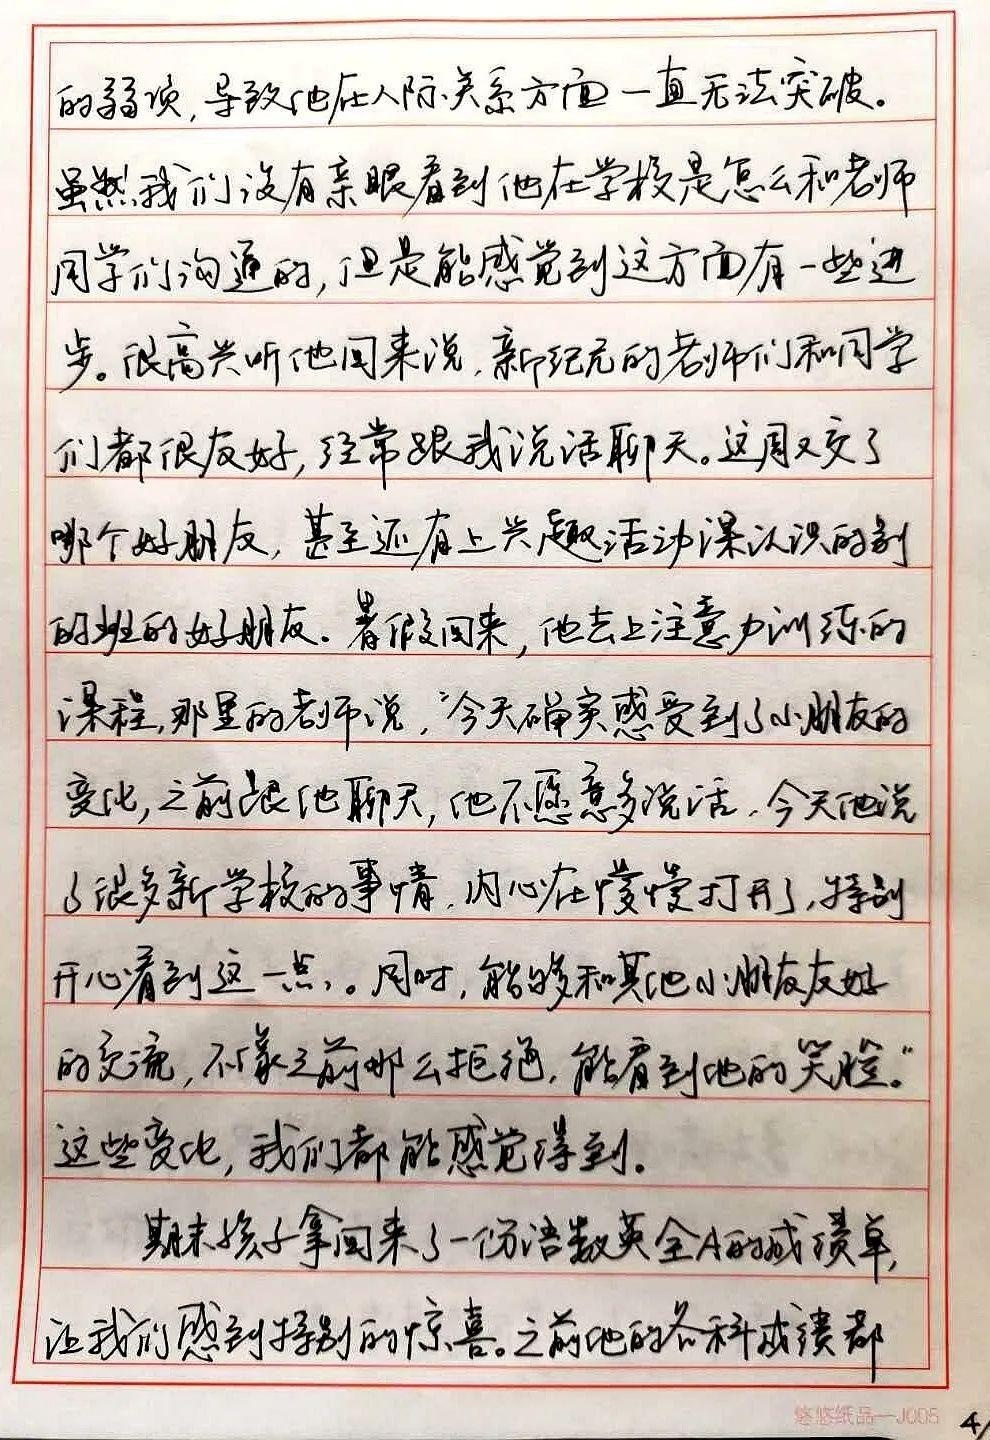 的弱项,导致他在人际关系方面一直无法突破。
虽然我们没有亲眼看到他在学校是怎么和老师
同学们沟通的,但是能感觉到这方面有一些进
步。很高兴听他回来说,新纪元的老师们和同学
们都很友好,经常跟我说话聊天。这周又交了
哪个好朋友,甚至还有上兴趣活动课认识的别
的班的好朋友。暑假回来,他去上注意力训练的
课程,那里的老师说,“今天确实感受到了小朋友的
变化,之前跟他聊天,他不愿意多说话,今天他说
了很多新学校的事情,内心在慢慢打开了,特别
开心看到这一点。同时,能够和其他小朋友友好
的交流,不象之前那么拒绝,能看到他的笑脸。”
这些变化,我们都能感觉得到.
期末孩子拿回来了一份语数英全A的成绩单,
让我们感到特别的惊喜。之前他的各科成绩都
悠悠纸品—J005
4/